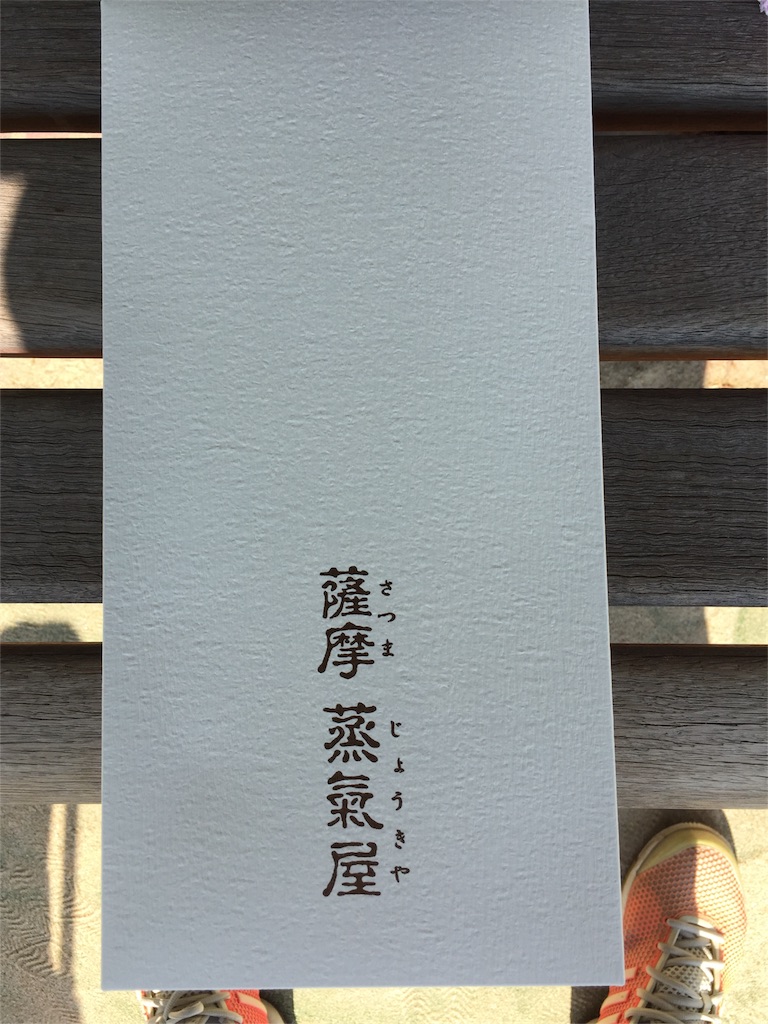 薩摩 蒸氣屋
さつま じょうきや